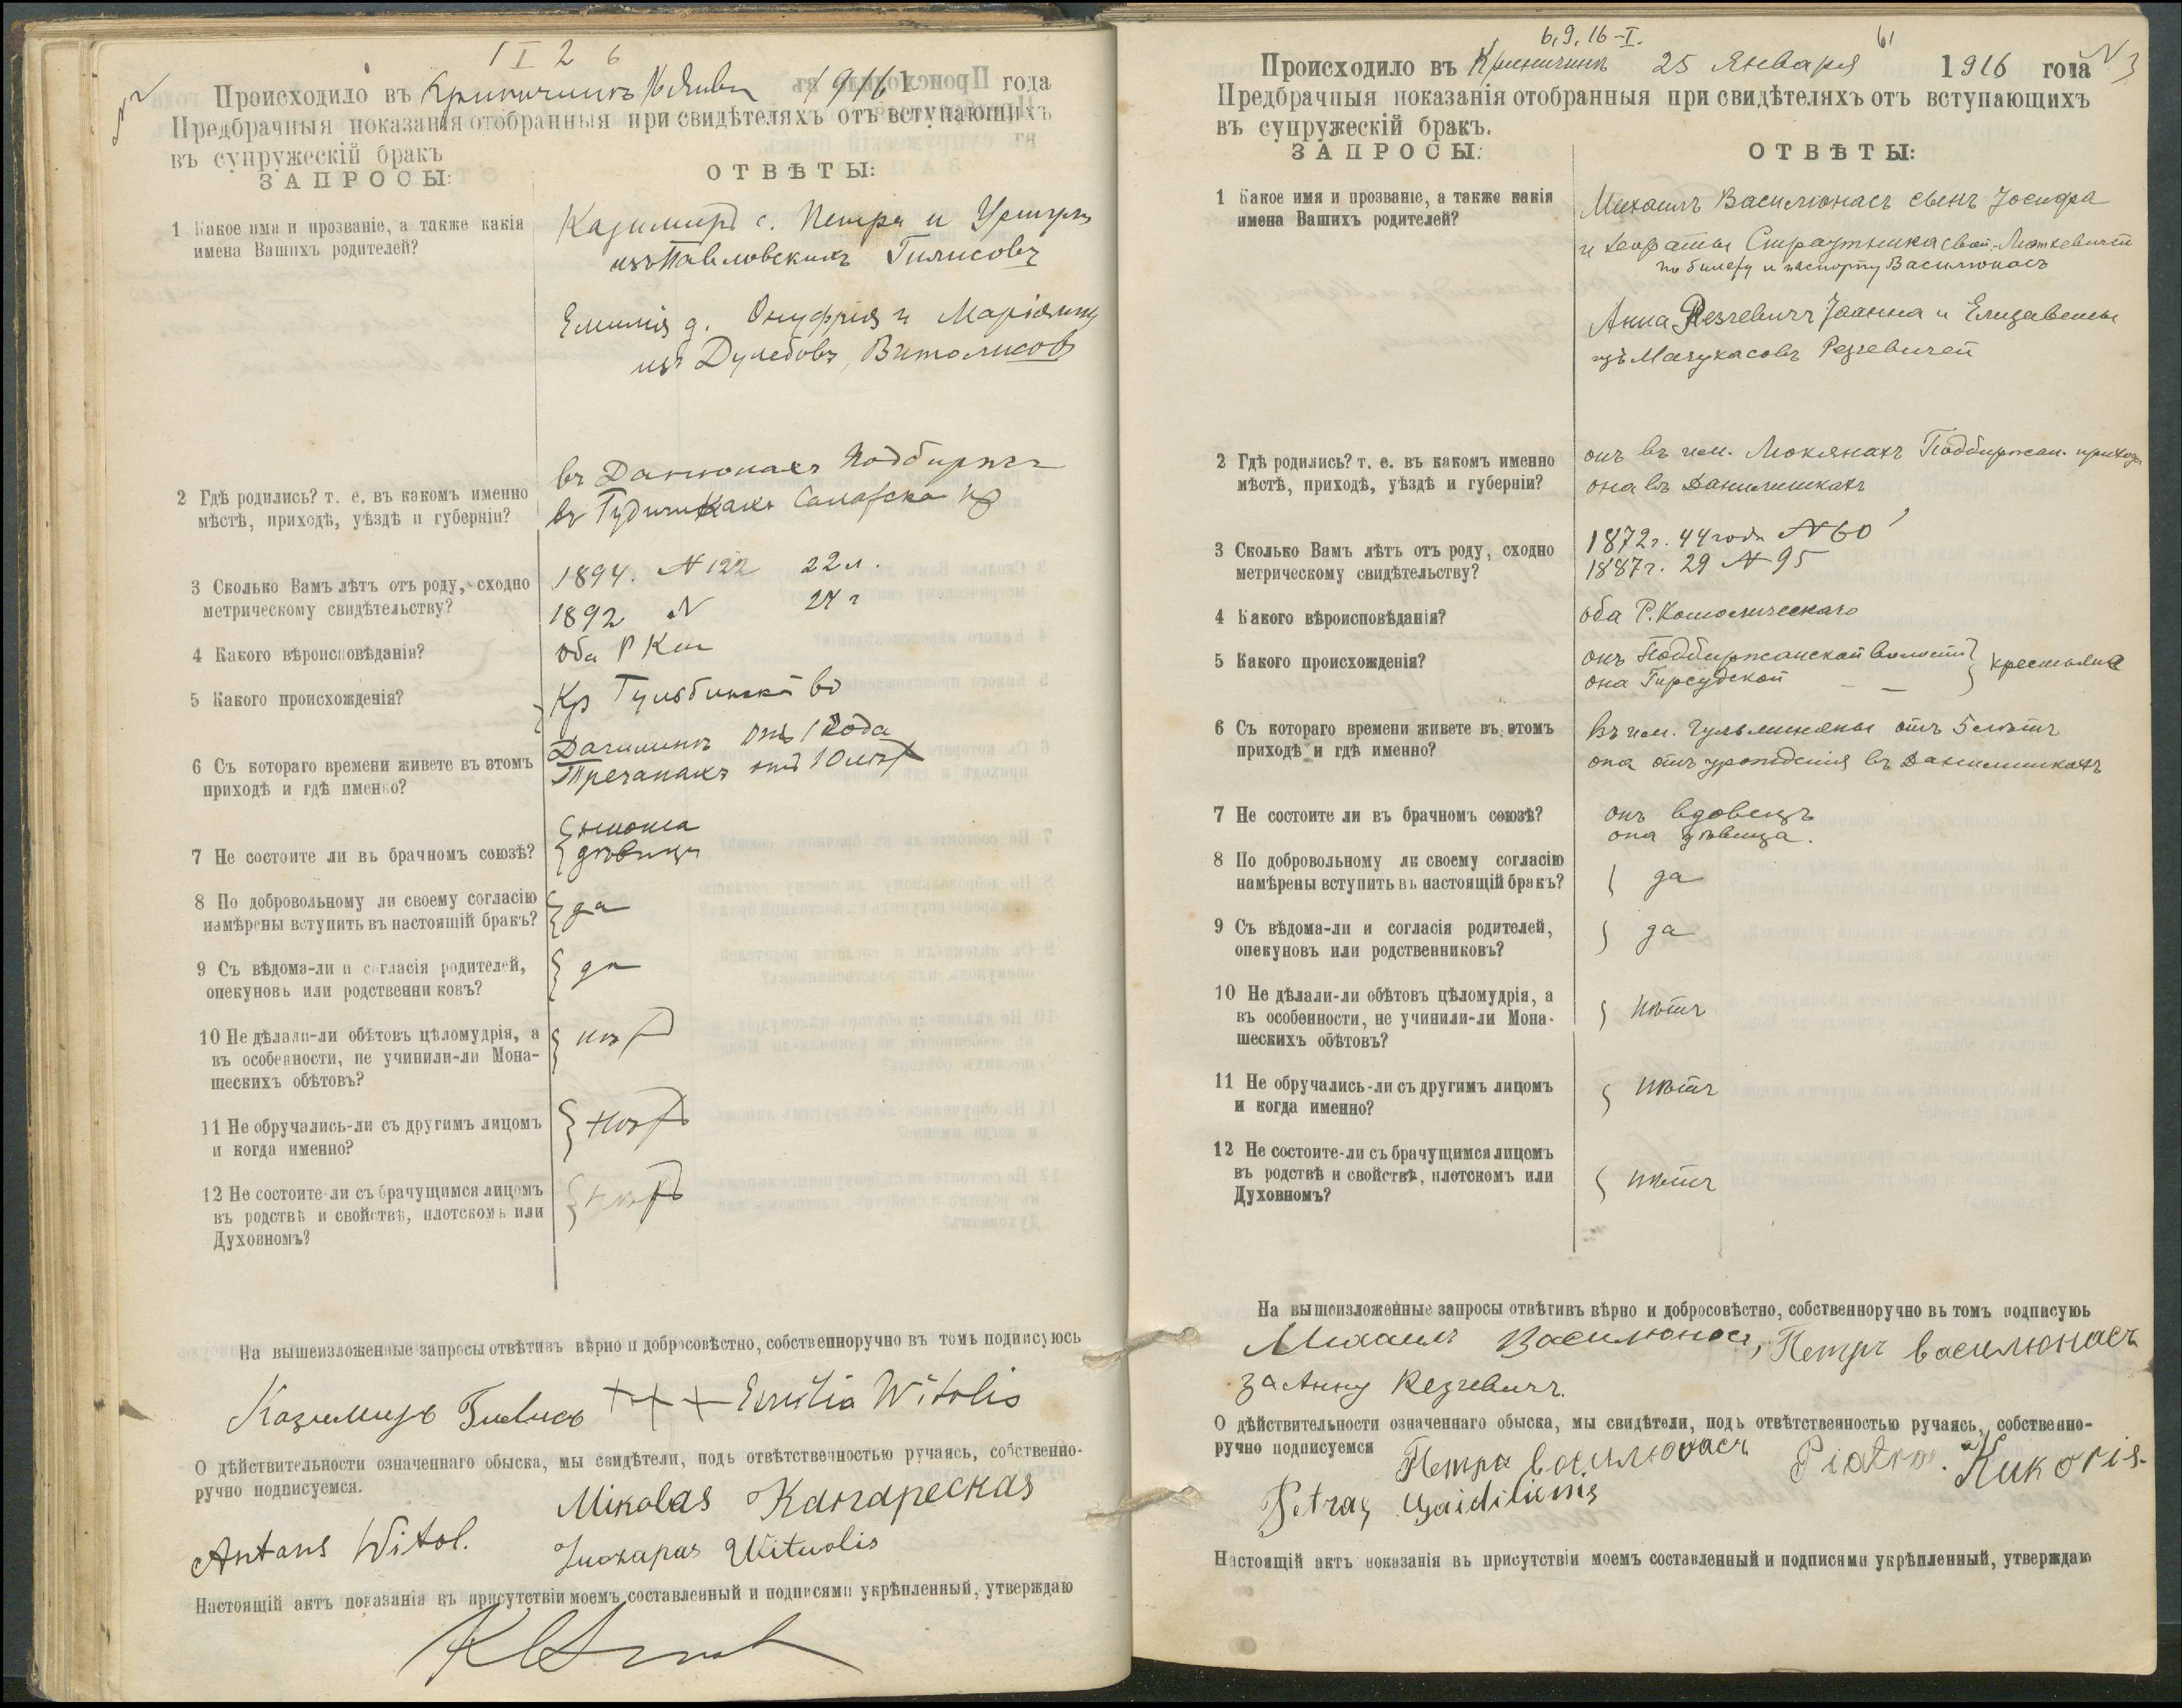 1 I 2 6
Происходило въ Криничинъ 16 Янв 1916 года
Предбрачныя показанія отобранныя при свидѣтеляхъ отъ вступающихъ
въ супружескій бракъ
ЗАПРОСЫ:
ОТВѢТЫ:
1 Какое имя и прозваніе, а также какія
имена Вашихъ родителей?
Казимиръ с. Петра и Уршули
изъ Павловскихъ
Емилія д. Онуфрія и Маріянны
изъ Дулебовъ, Витолисовъ
2 Гдѣ родились? т. е. въ какомъ именно
мѣстѣ, приходѣ, уѣздѣ и губерніи?
въ
въ
3 Сколько Вамъ лѣтъ отъ роду, сходно
метрическому свидѣтельству?
1894. N 122 22 л.
1892 N 24 г
4 Какого вѣроисповѣданія?
оба Р Кат
5 Какого происхожденія?
Кр
6 Съ котораго времени живете въ этомъ
приходѣ и гдѣ именно?
отъ 1 года
отъ 10 лѣтъ
7 Не состоите ли въ брачномъ союзѣ?
юноша
дѣвица
8 По добровольному ли своему согласію
намѣрены вступить въ настоящій бракъ?
да
9 Съ вѣдома-ли и согласія родителей,
опекуновъ или родственниковъ?
да
10 Не дѣлали-ли обѣтовъ цѣломудрія, а
въ особенности, не учинили-ли Мона-
шескихъ обѣтовъ?
нѣтъ
11 Не обручались-ли съ другимъ лицомъ
и когда именно?
нѣтъ
12 Не состоите-ли съ брачущимся лицомъ
въ родствѣ и свойствѣ, плотскомъ или
Духовномъ?
нѣтъ
На вышеизложенные запросы отвѣтивъ вѣрно и добросовѣстно, собственноручно въ томъ подписуюсь
Казимиръ +++ Emilia Witolis
О дѣйствительности означеннаго обыска, мы свидѣтели, подъ отвѣтственностью ручаясь, собственно-
ручно подписуемся.
Mikolas
Antans Witol.
Juozapas Wituolis
Настоящій актъ показанія въ присутствіи моемъ составленный и подписями укрѣпленный, утверждаю
6, 9, 16-I.
61
Происходило въ Криничинъ 25 Января 1916 года N 3
Предбрачныя показанія отобранныя при свидѣтеляхъ отъ вступающихъ
въ супружескій бракъ.
ЗАПРОСЫ:
ОТВѢТЫ:
1 Какое имя и прозваніе, а также какія
имена Вашихъ родителей?
Михаилъ Василюнасъ сынъ Іосифа
и
по билету и паспорту Василюнасъ
Анна Резгевичъ Іоанна и Елизаветы
изъ Мачукасовъ Резгевичей
2 Гдѣ родились? т. е. въ какомъ именно
мѣстѣ, приходѣ, уѣздѣ и губерніи?
онъ въ им. Моклянахъ Поддыржан. прихода
она въ Данилишкахъ
3 Сколько Вамъ лѣтъ отъ роду, сходно
метрическому свидѣтельству?
1872 г. 44 года N 60
1887 г. 29 N 95
4 Какого вѣроисповѣданія?
оба Р. Католическаго
5 Какого происхожденія?
онъ Поддыржанской волости } крестьяне
она Гирсудской — —
6 Съ котораго времени живете въ этомъ
приходѣ и гдѣ именно?
въ им. отъ 5 лѣтъ
она отъ урожденія въ Данилишкахъ
7 Не состоите ли въ брачномъ союзѣ?
онъ вдовецъ
она дѣвица.
8 По добровольному ли своему согласію
намѣрены вступить въ настоящій бракъ?
да
9 Съ вѣдома-ли и согласія родителей,
опекуновъ или родственниковъ?
да
10 Не дѣлали-ли обѣтовъ цѣломудрія, а
въ особенности, не учинили-ли Мона-
шескихъ обѣтовъ?
нѣтъ
11 Не обручались-ли съ другимъ лицомъ
и когда именно?
нѣтъ
12 Не состоите-ли съ брачущимся лицомъ
въ родствѣ и свойствѣ, плотскомъ или
Духовномъ?
нѣтъ
На вышеизложенные запросы отвѣтивъ вѣрно и добросовѣстно, собственноручно въ томъ подписуюь
Михаилъ Василюнасъ, Петръ Василюнасъ
за Анну Резгевичъ.
О дѣйствительности означеннаго обыска, мы свидѣтели, подъ отвѣтственностью ручаясь, собственно-
ручно подписуемся
Петръ Василюнасъ Piatro. Kukoris.
Petras Gaidiliunis
Настоящій актъ показанія въ присутствіи моемъ составленный и подписями укрѣпленный, утверждаю